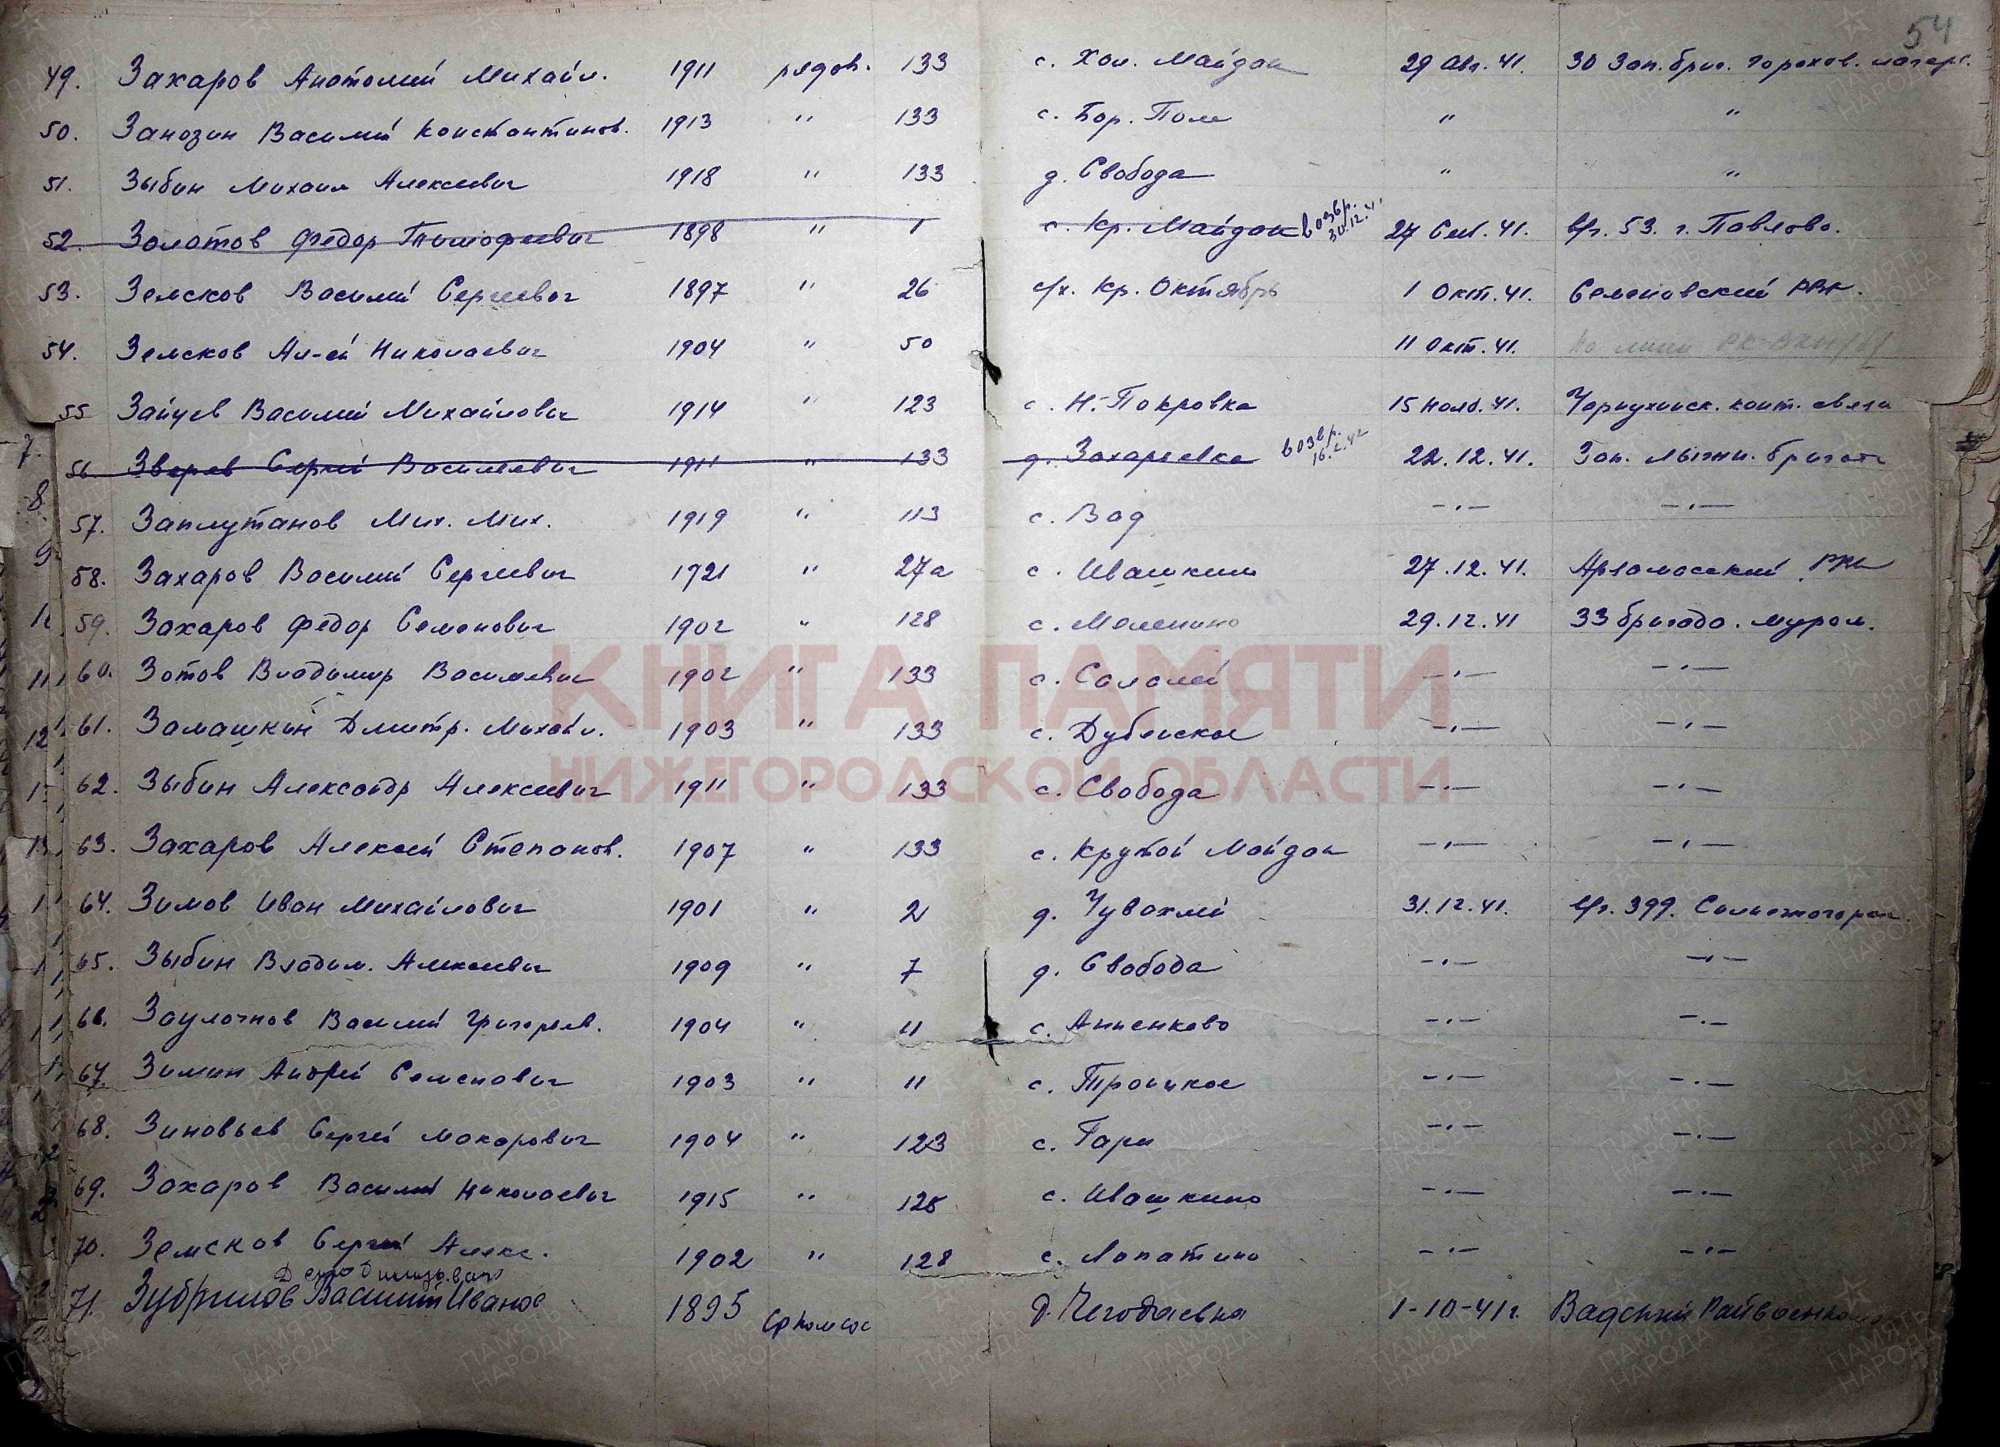 54
49. Захаров Анатолий Михайл. 1911 рядов. 133 с. Хол. Майдан 29 Авг. 41. 30 Зап. бриг. Горохов. лагерь.
50. Занозин Василий Константинов. 1913 " 133 с. Бор. Поле " "
51. Зыбин Михаил Алексеевич 1918 " 133 д. Свобода " "
52. Золотов Федор Тимофеевич 1898 " 1 с. Кр. Майдан возвр. 30.12.41 27 Сент. 41. в/ч. 53. г. Павлово.
53. Земсков Василий Сергеевич 1897 " 26 с/х. Кр. Октябрь 1 Окт. 41. Семеновский РВК.
54. Земсков Ал-ей Николаевич 1904 " 50 11 Окт. 41. По линии
55 Зайцев Василий Михайлович 1914 " 123 с. Н.-Покровка 15 Нояб. 41. Чернухинск. конт. связи
56. Зверев Сергей Васильевич 1911 " 133 д. Захарьевка возвр. 16.2.42 22.12.41. Зап. лыжн. бригада
57. Заплутанов Мих. Мих. 1919 " 113 с. Вад –·– –·–
58. Захаров Василий Сергеевич 1921 " 27а с. Ивашкино 27.12.41. Арзамасский
59. Захаров Федор Семенович 1902 " 128 с. 29.12.41 33 бригада. Муром.
60. Зотов Владимир Васильевич 1902 " 133 с. Салалей –·– –·–
61. Замашкин Дмитр. Михайл. 1903 " 133 с. Дубенское –·– –·–
62. Зыбин Александр Алексеевич 1911 " 133 с. Свобода –·– –·–
63. Захаров Алексей Степанов. 1907 " 133 с. Крутой Майдан –·– –·–
64. Зимов Иван Михайлович 1901 " 2 д. Чувахлей 31.12.41. в/ч. 399. Солнечногорск.
65. Зыбин Владим. Алексеевич 1909 " 7 д. Свобода –·– –·–
66. Заулочнов Василий Григорьев. 1904 " 11 с. Анненково –·– –·–
67. Зимин Андрей Семенович 1903 " 11 с. Троицкое –·– –·–
68. Зиновьев Сергей Макарович 1904 " 123 с. Гари –·– –·–
69. Захаров Василий Николаевич 1915 " 125 с. Ивашкино –·– –·–
70. Земсков Сергей Алекс. 1902 " 128 с. Лопатино –·– –·–
Демобилизован
71. Зубрилов Василий Иванов 1895 Ср Комсос д. Чегодаевка 1-10-41г. Вадский Райвоенком
КНИГА ПАМЯТИ
НИЖЕГОРОДСКОЙ ОБЛАСТИ
ПАМЯТЬ НАРОДА